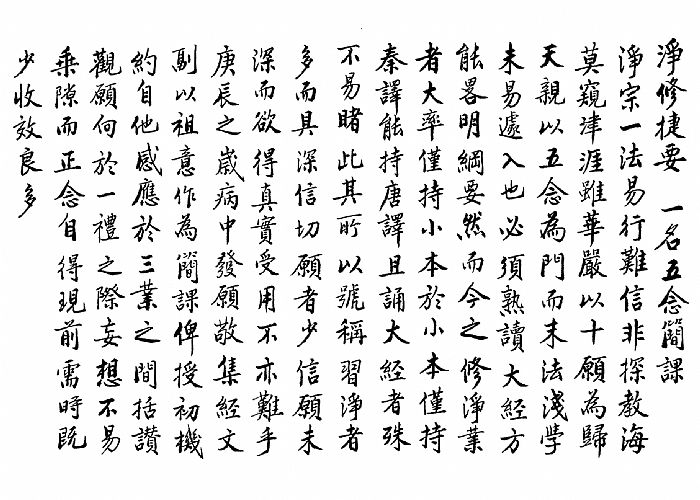 淨修捷要 一名五念簡課
淨宗一法易行難信非探教海
莫窺津涯雖華嚴以十願為歸
天親以五念為門而末法淺學
未易遽入也必須熟讀大經方
能畧明綱要然而今之修淨業
者大率僅持小本於小本僅持
秦譯能持唐譯且誦大經者殊
不易睹此其所以號稱習淨者
多而具深信切願者少信願未
深而欲得真實受用不亦難乎
庚辰之歲病中發願敬集經文
副以祖意作為簡課俾授初機
約自他感應於三業之間括讚
觀願何於一禮之際妄想不易
乘隙而正念自得現前需時既
少收效良多